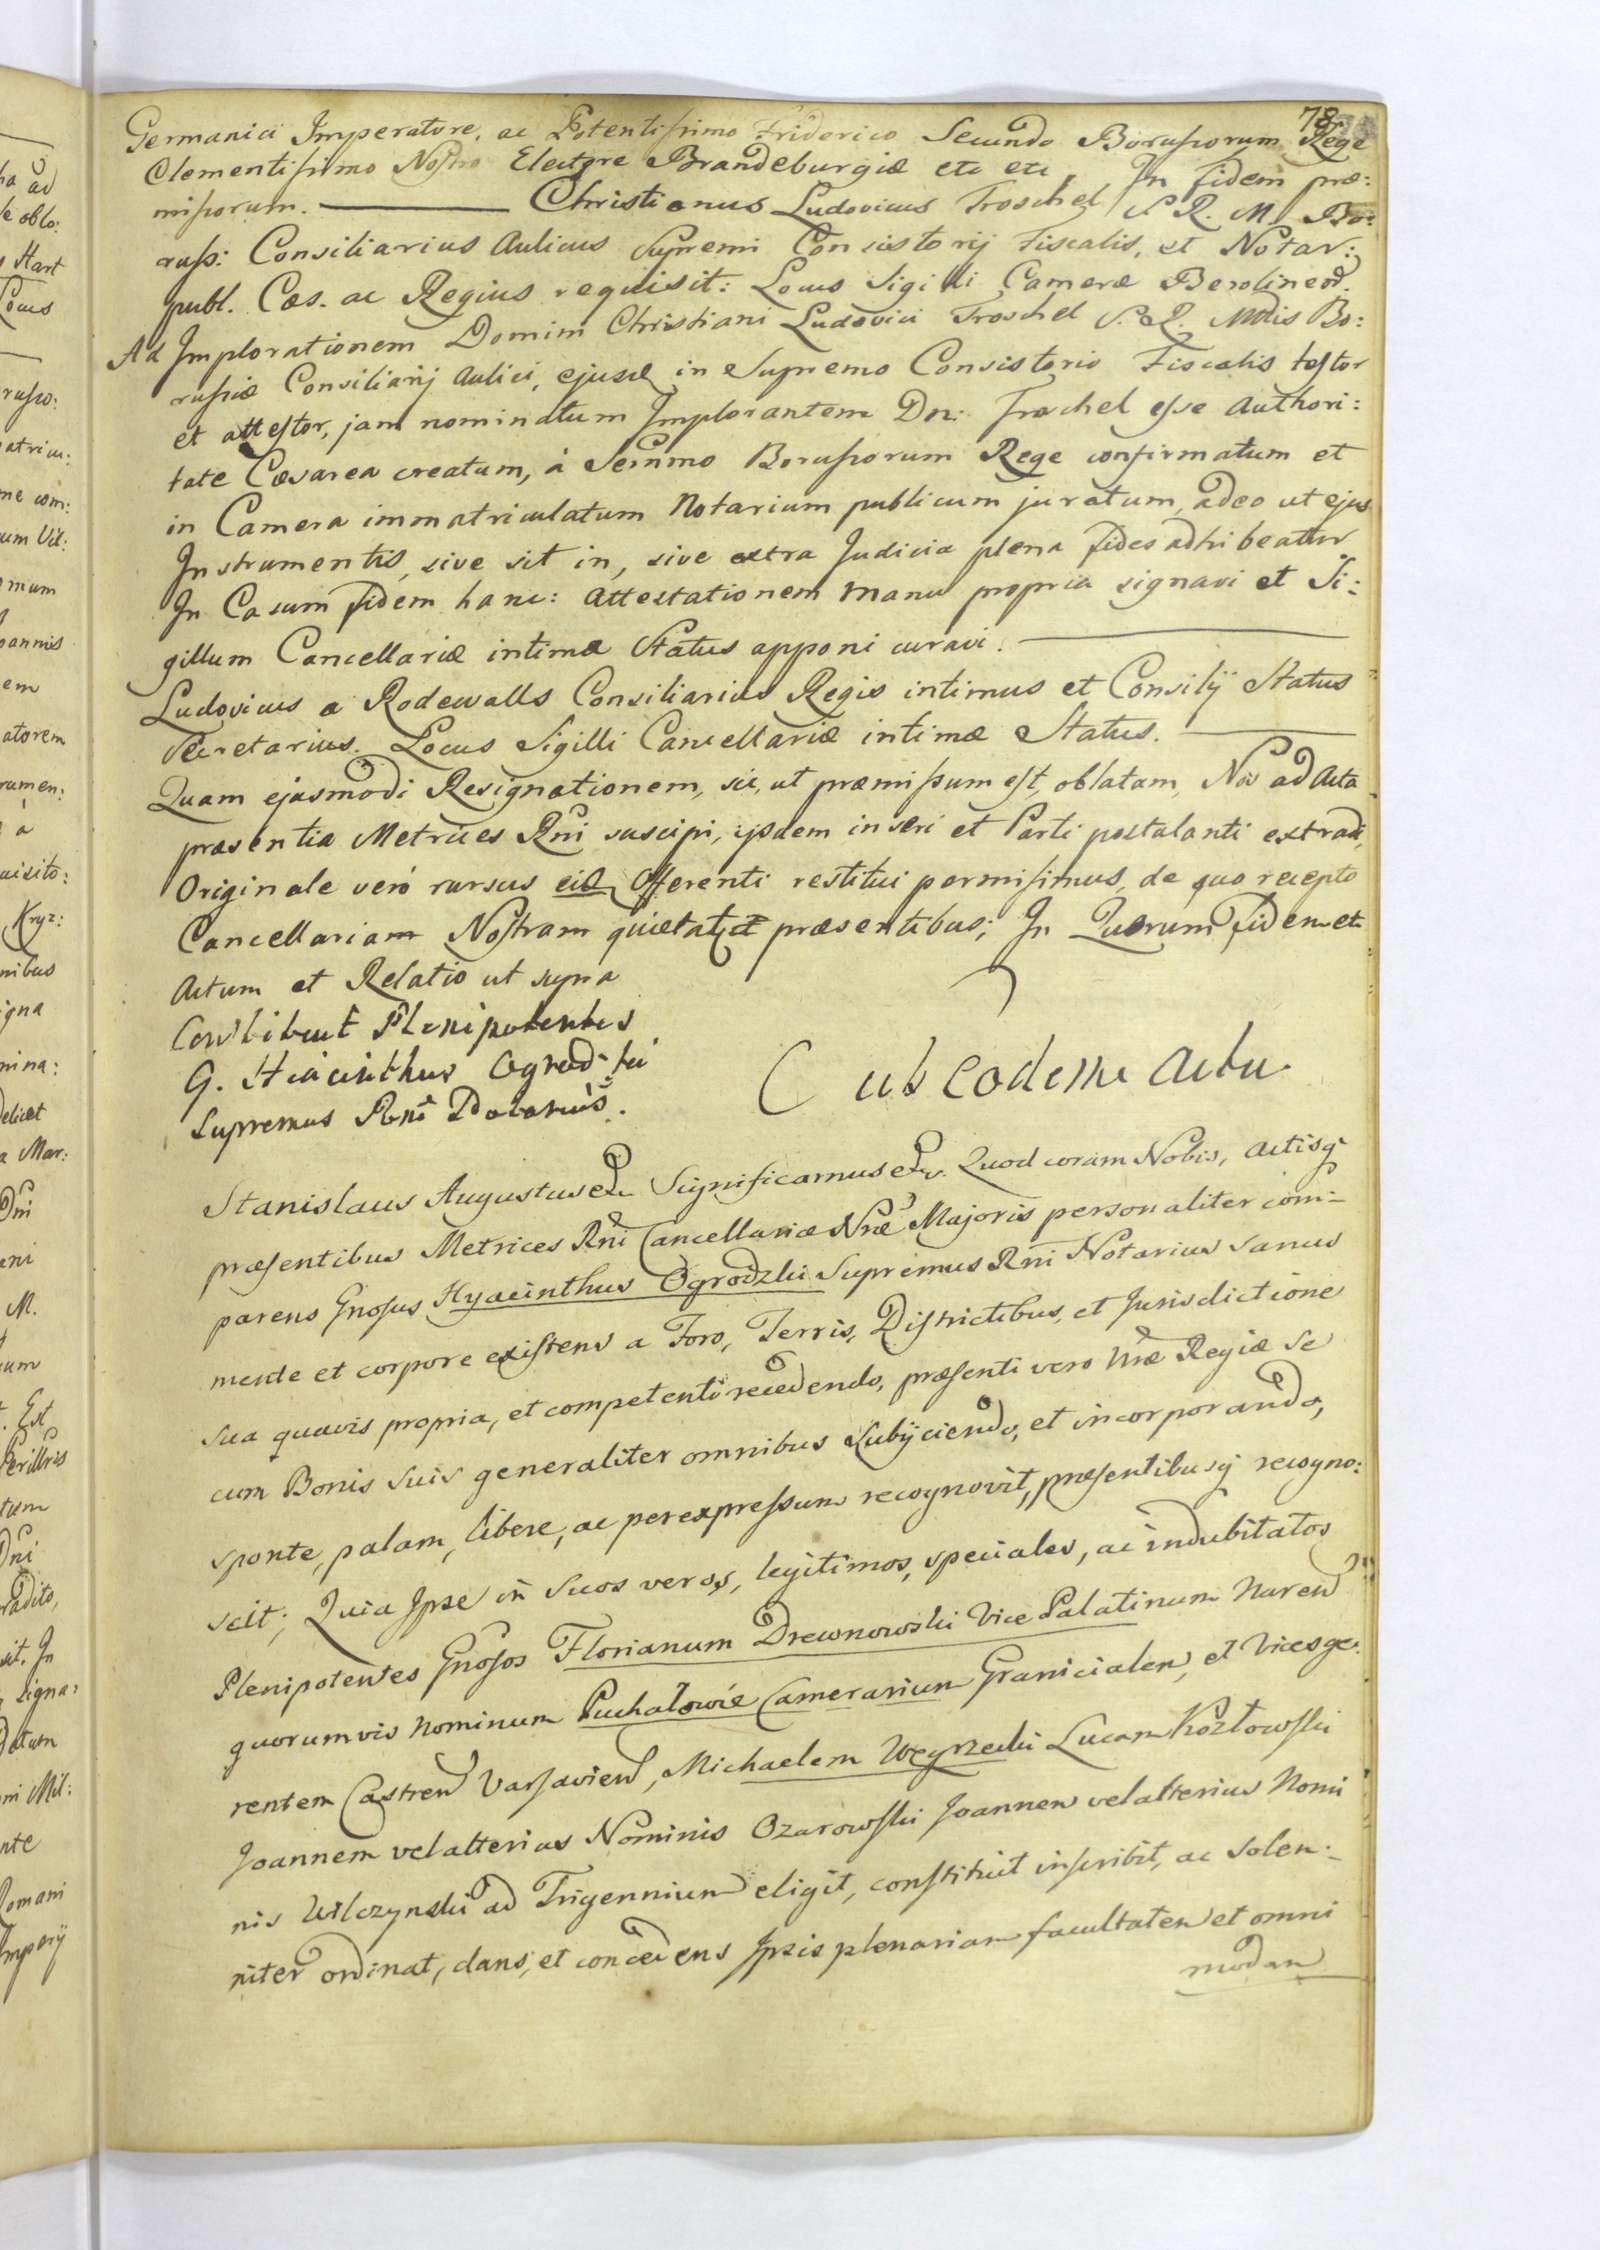 78
Germanici Imperatore, ac Potentissimo Friderico Secundo Borussorum Rege
Clementissimo Nostro Electore Brandeburgiæ etc etc, In fidem præ:
missorum. Christianus Ludovicus Troschel S. R. M. Bo:
russ: Consiliarius Aulicus Supremi Consistorij Fiscalis, et Notar:
publ. Cæs. ac Regius requisit: Locus Sigilli Cameræ Berolinens.
Ad Implorationem Domini Christiani Ludovici Troschel S. R. Mttis Bo:
russiæ Consiliarij Aulici, ejusq in Supremo Consistorio Fiscalis testor
et attestor, jam nominatum Implorantem Dn: Troschel esse Authori:
tate Cæsarea creatum, à Sermmo Borussorum Rege confirmatum et
in Camera immatriculatum Notarium publicum juratum, adeo ut ejus
Instrumentis, sive sit in, sive extra Judicia plena fides adhibeatur
In Casum fidem hanc: Attestationem manu propria signavi et Si:
gillum Cancellariæ intimæ Status apponi curavi.
Ludovicus a Rodewalls Consiliarius Regis intimus et Consilij Status
Secretarius. Locus Sigilli Cancellariæ intimæ Status.
Quam ejusmodi Resignationem, sic, ut præmissum est, oblatam, Nos ad Acta
præsentia Metrices Rni suscipi, ijsdem inseri et Parti postulanti extradi,
Originale verò rursus eid Offerenti restitui permisimus, de quo recepto
Cancellariam Nostram quietat præsentibus; In Quorum fidem et
Actum et Relatio ut supra
Constibuit Plenipotentes
G. Hiacinthus Ogrodzki
Supremus Rni Notarius.
Sub eodem Actu
Stanislaus Augustus etc Significamus etc. Quod coram Nobis, Actisq
præsentibus Metrices Rni Cancellariæ Nræ Majoris personaliter com:
parens Gnosus Hyacinthus Ogrodzki Supremus Rni Notarius sanus
mente et corpore existens a Foro, Terris, Districtibus, et Jurisdictione
sua quavis propria, et competenti recedendo, præsenti vero Nræ Regiæ se
cum Bonis suis generaliter omnibus subijciendo, et incorporando,
sponte, palam, libere, ac per expressum recognovit, præsentibusq recogno:
scit; Quia Ipse in suos veros, legitimos, speciales, ac indubitatos
Plenipotentes Gnosos Florianum Drewnowski Vice Palatinum Naren
quorumvis Nominum Puchałowie Camerarium Granicialem, et Vicesge:
rentem Castren Varsavien, Michaelem Węgrzecki Lucam Kozłowski
Joannem vel alterius Nominis Ozarowski Joannem vel alterius Nomi
nis Wilczynski ad Trigennium eligit, constituit inscribit, ac solen:
niter ordinat, dans, et concedens Ipsis plenariam facultatem et omni
modam